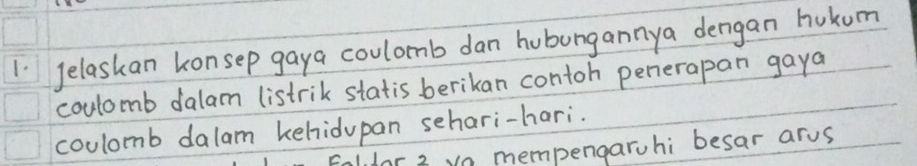 1. Jelaskan konsep gaya coulomb dan hubungannya dengan hukum
coulomb dalam listrik statis berikan contoh penerapan gaya
coulomb dalam kehidupan sehari-hari.
mempengaruhi besar arus